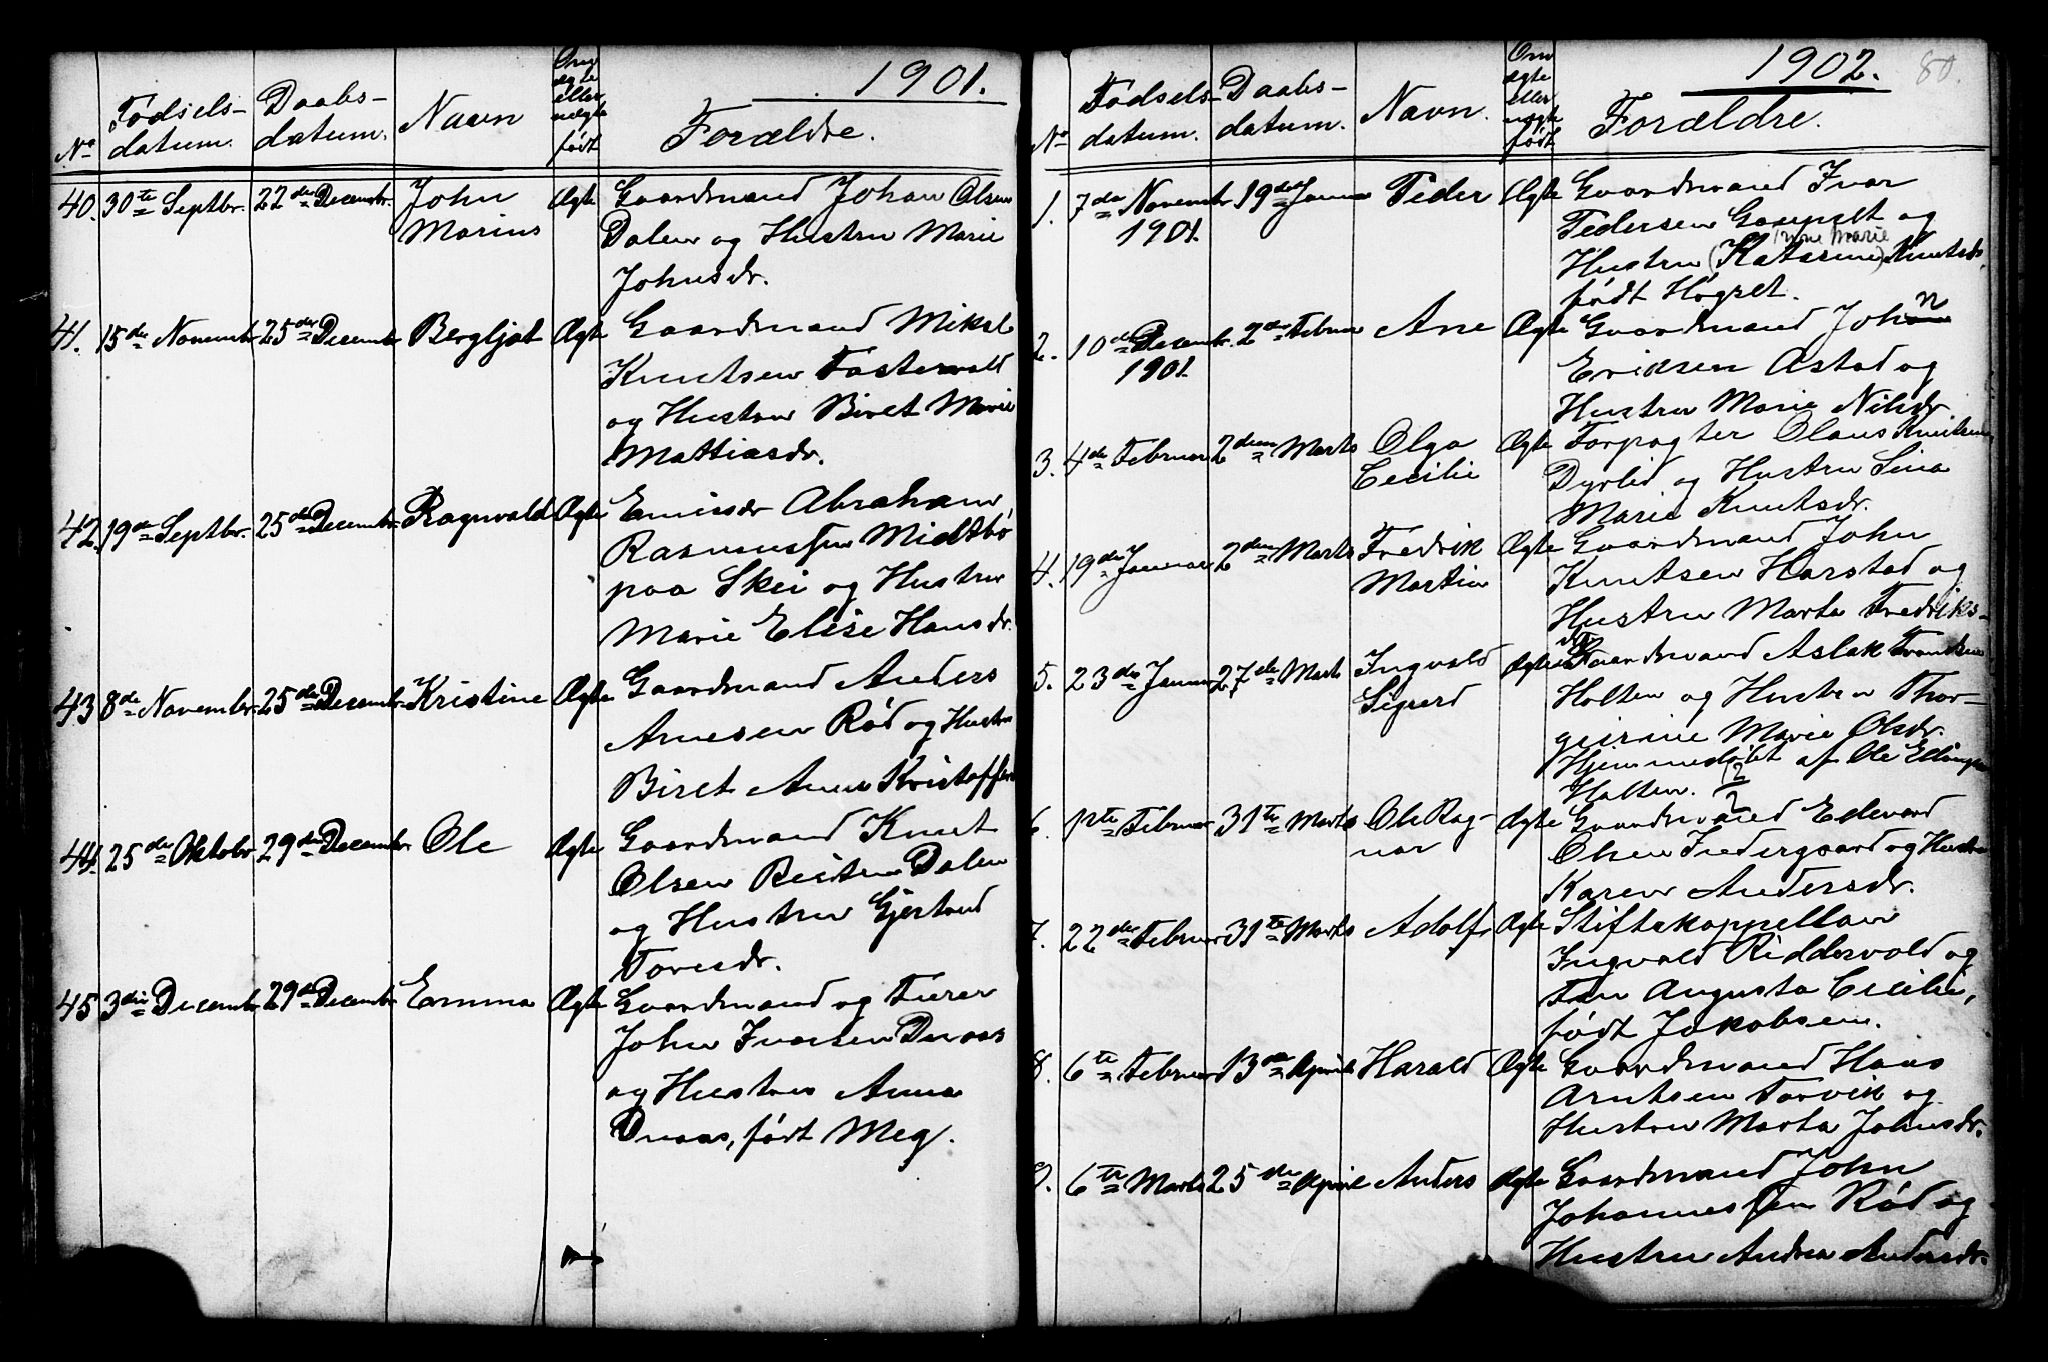 1901.
No
Fødsels-
datum.
Daabs-
datum.
Navn
Om
ægte
eller
uægte
født
Forældre.
40. 30te Septbr. 22de Decembr. John Ægte Gaardmand Johan Olsen
Marius Dalen og Hustru Marie
Johnsdr.
41. 15de Novembr. 25de Decembr. Bergljot Ægte Gaardmand Mikal
Knutsen Fostervold
og Hustru Biret Marie
Mattiasdr.
42. 19de Septbr. 25de Decembr. Ragnvald Ægte Emissær Abraham
Rasmussen Midtbø
paa Skei og Hustru
Marie Elise Hansdr.
43 8de Novembr. 25de Decembr. Kristine Ægte Gaardmand Anders
Arnesen Rød og Hustru
Biret Anne
44. 25de Oktobr. 29de Decembr. Ole Ægte Gaardmand Knut
Olsen Reiten Dalen
og Hustru Gjertrud
Toresdr.
45 3die Decembr. 29de Decembr. Emma Ægte Gaardmand og Furer
John Ivarsen Duaas
og Hustru Anna
Duaas, født Meg.
1902. 80.
No
Fødsels-
datum.
Daabs-
datum.
Navn.
Om
ægte
eller
uægte
født
Forældre.
1. 7de Novembr. 19de Januar Peder Ægte Gaardmand Ivar
1901. Pedersen Gaupset og
Anne Marie
Hustru (Katarine) Knutsdr.
født Høgset.
2. 10de Decembr. 2den Februar Ane Ægte Gaardmand John
1901. Eriksen Astad og
Hustru Marie Nilsdr.
3. 4de Februar 2den Marts Olga Ægte Forpagter Olaus Knutsen
Cecilie Dyrlid og Hustru Lina
Marie Knutsdr.
4. 19de Januar 2den Marts Fredrik Ægte Gaardmand John
Martin Knutsen Harstad og
Hustru Marta Fredriks-
dr.
5. 23de Januar 27de Marts Ingvald Ægte Gaardmand Aslak
Sigurd Holten og Hustru Thor-
girine Marie Olsdr.
Hjemmedøbt af Ole
Holten. 12/2
6. 12te Februar 31te Marts Ole Rag- Ægte Gaardmand Edevard
nar Olsen Fredergaard og Hustru
Karen Andersdr.
7. 22de Februar 31te Marts Adolf Ægte Stiftskappellan
Ingvald Riddervold og
Fru Augusta Cecilie,
født Jakobsen.
8. 6te Februar 13de April Harald Ægte Gaardmand Hans
Arntsen Torvik og
Hustru Marta Johnsdr.
9. 6te Marts 25de April Anders Ægte Gaardmand John
Johannessen Rød og
Hustru Andrea Andersdr.